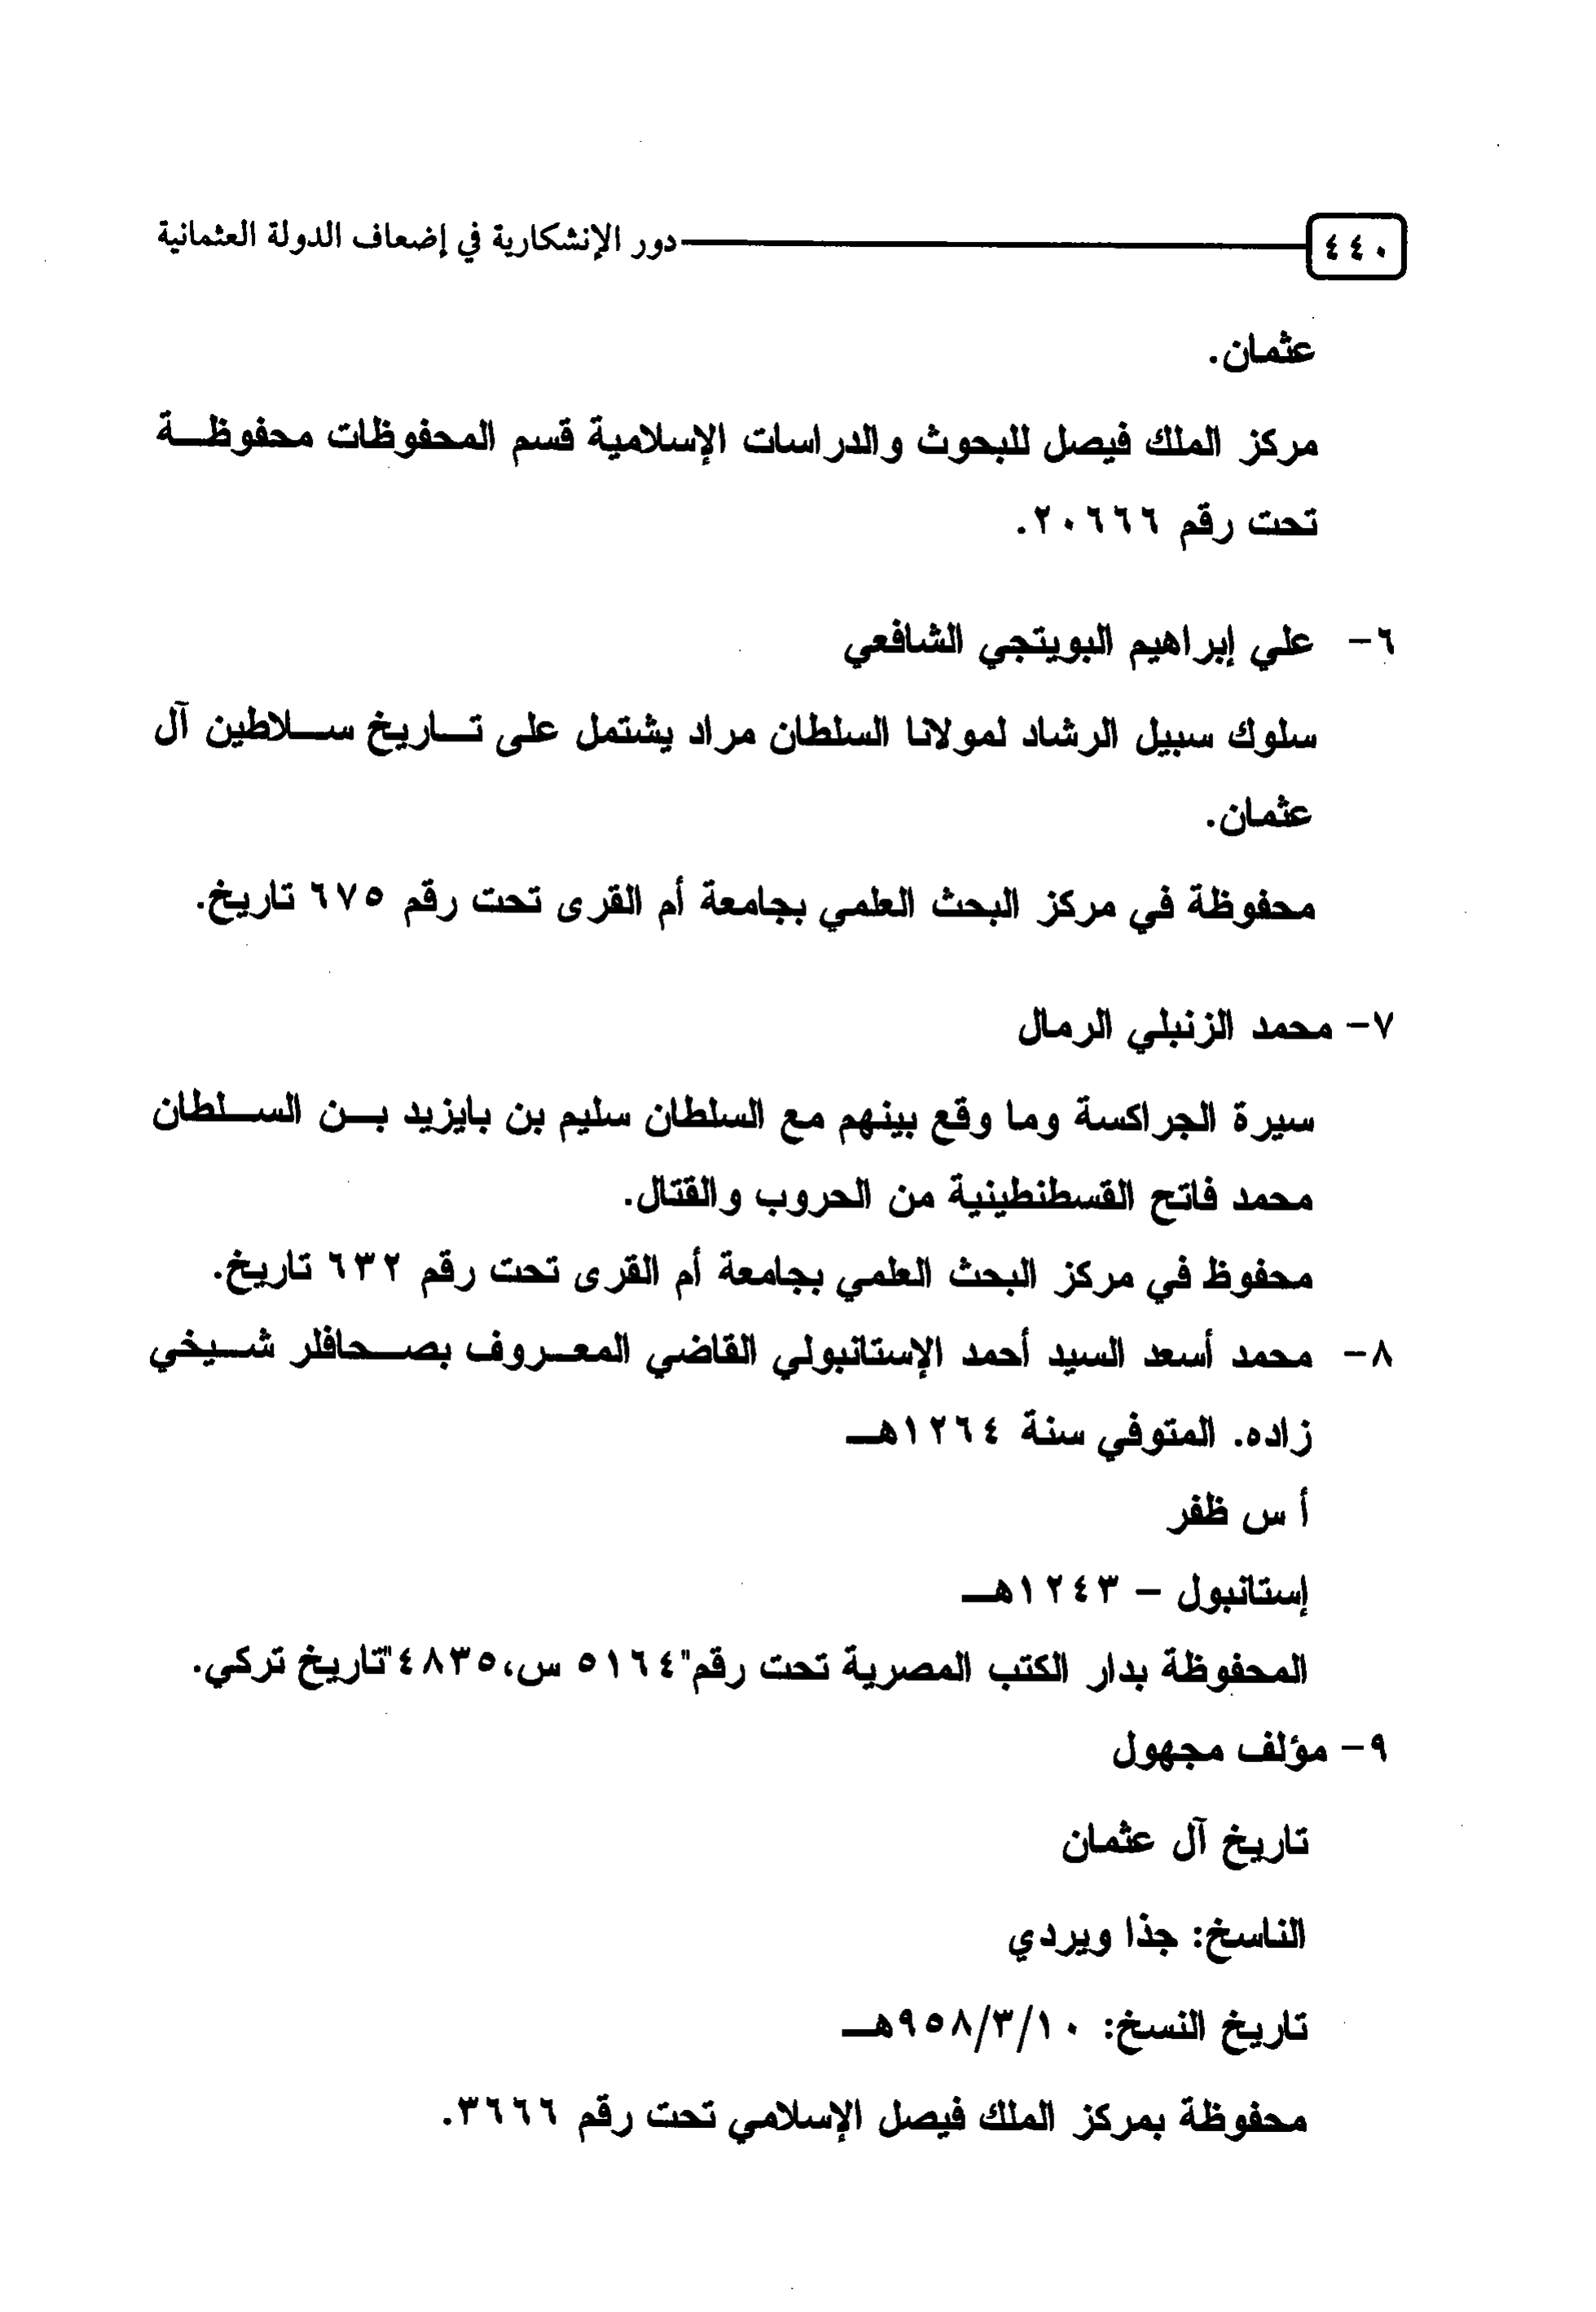 ٤٤٠ دور الإنشكارية في إضعاف الدولة العثمانية
عثمان.
مركز الملك فيصل للبحوث والدراسات الإسلامية قسم المحفوظات محفوظة
تحت رقم ٢٠٦٦٦.
٦- علي إبراهيم البويتجي الشافعي
سلوك سبيل الرشاد لمولانا السلطان مراد يشتمل على تاريخ سلاطين آل
عثمان.
محفوظة في مركز البحث العلمي بجامعة أم القرى تحت رقم ٦٧٥ تاريخ.
٧- محمد الزنبلي الرمال
سيرة الجراكسة وما وقع بينهم مع السلطان سليم بن بايزيد بن السلطان
محمد فاتح القسطنطينية من الحروب والقتال.
محفوظ في مركز البحث العلمي بجامعة أم القرى تحت رقم ٦٣٢ تاريخ.
٨- محمد أسعد السيد أحمد الإستانبولي القاضي المعروف بصحافلر شيخي
زاده. المتوفي سنة ١٢٦٤هـ
أ س ظفر
إستانبول - ١٢٤٣هـ
المحفوظة بدار الكتب المصرية تحت رقم"٥١٦٤ س،٤٨٣٥"تاريخ تركي.
٩- مؤلف مجهول
تاريخ آل عثمان
الناسخ: جذا ويردي
تاريخ النسخ: ٩٥٨/٣/١٠هـ
محفوظة بمركز الملك فيصل الإسلامي تحت رقم ٣٦٦٦.